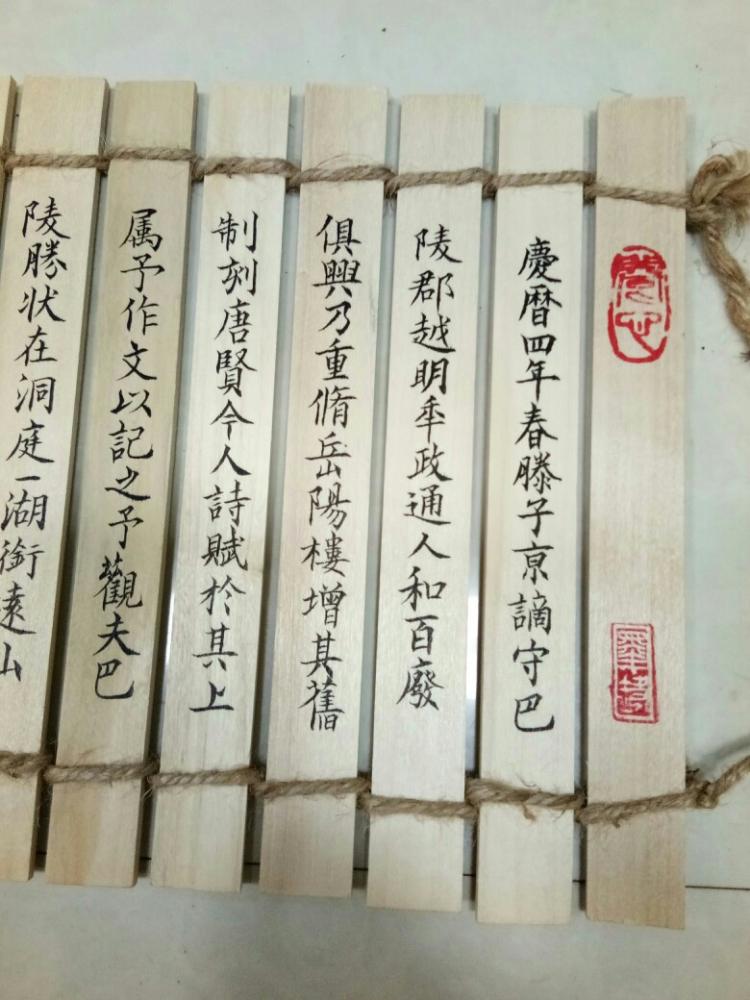 慶曆四年春滕子京謫守巴
陵郡越明年政通人和百廢
俱興乃重脩岳陽樓增其舊
制刻唐賢今人詩賦於其上
属予作文以記之予觀夫巴
陵勝状在洞庭一湖銜遠山